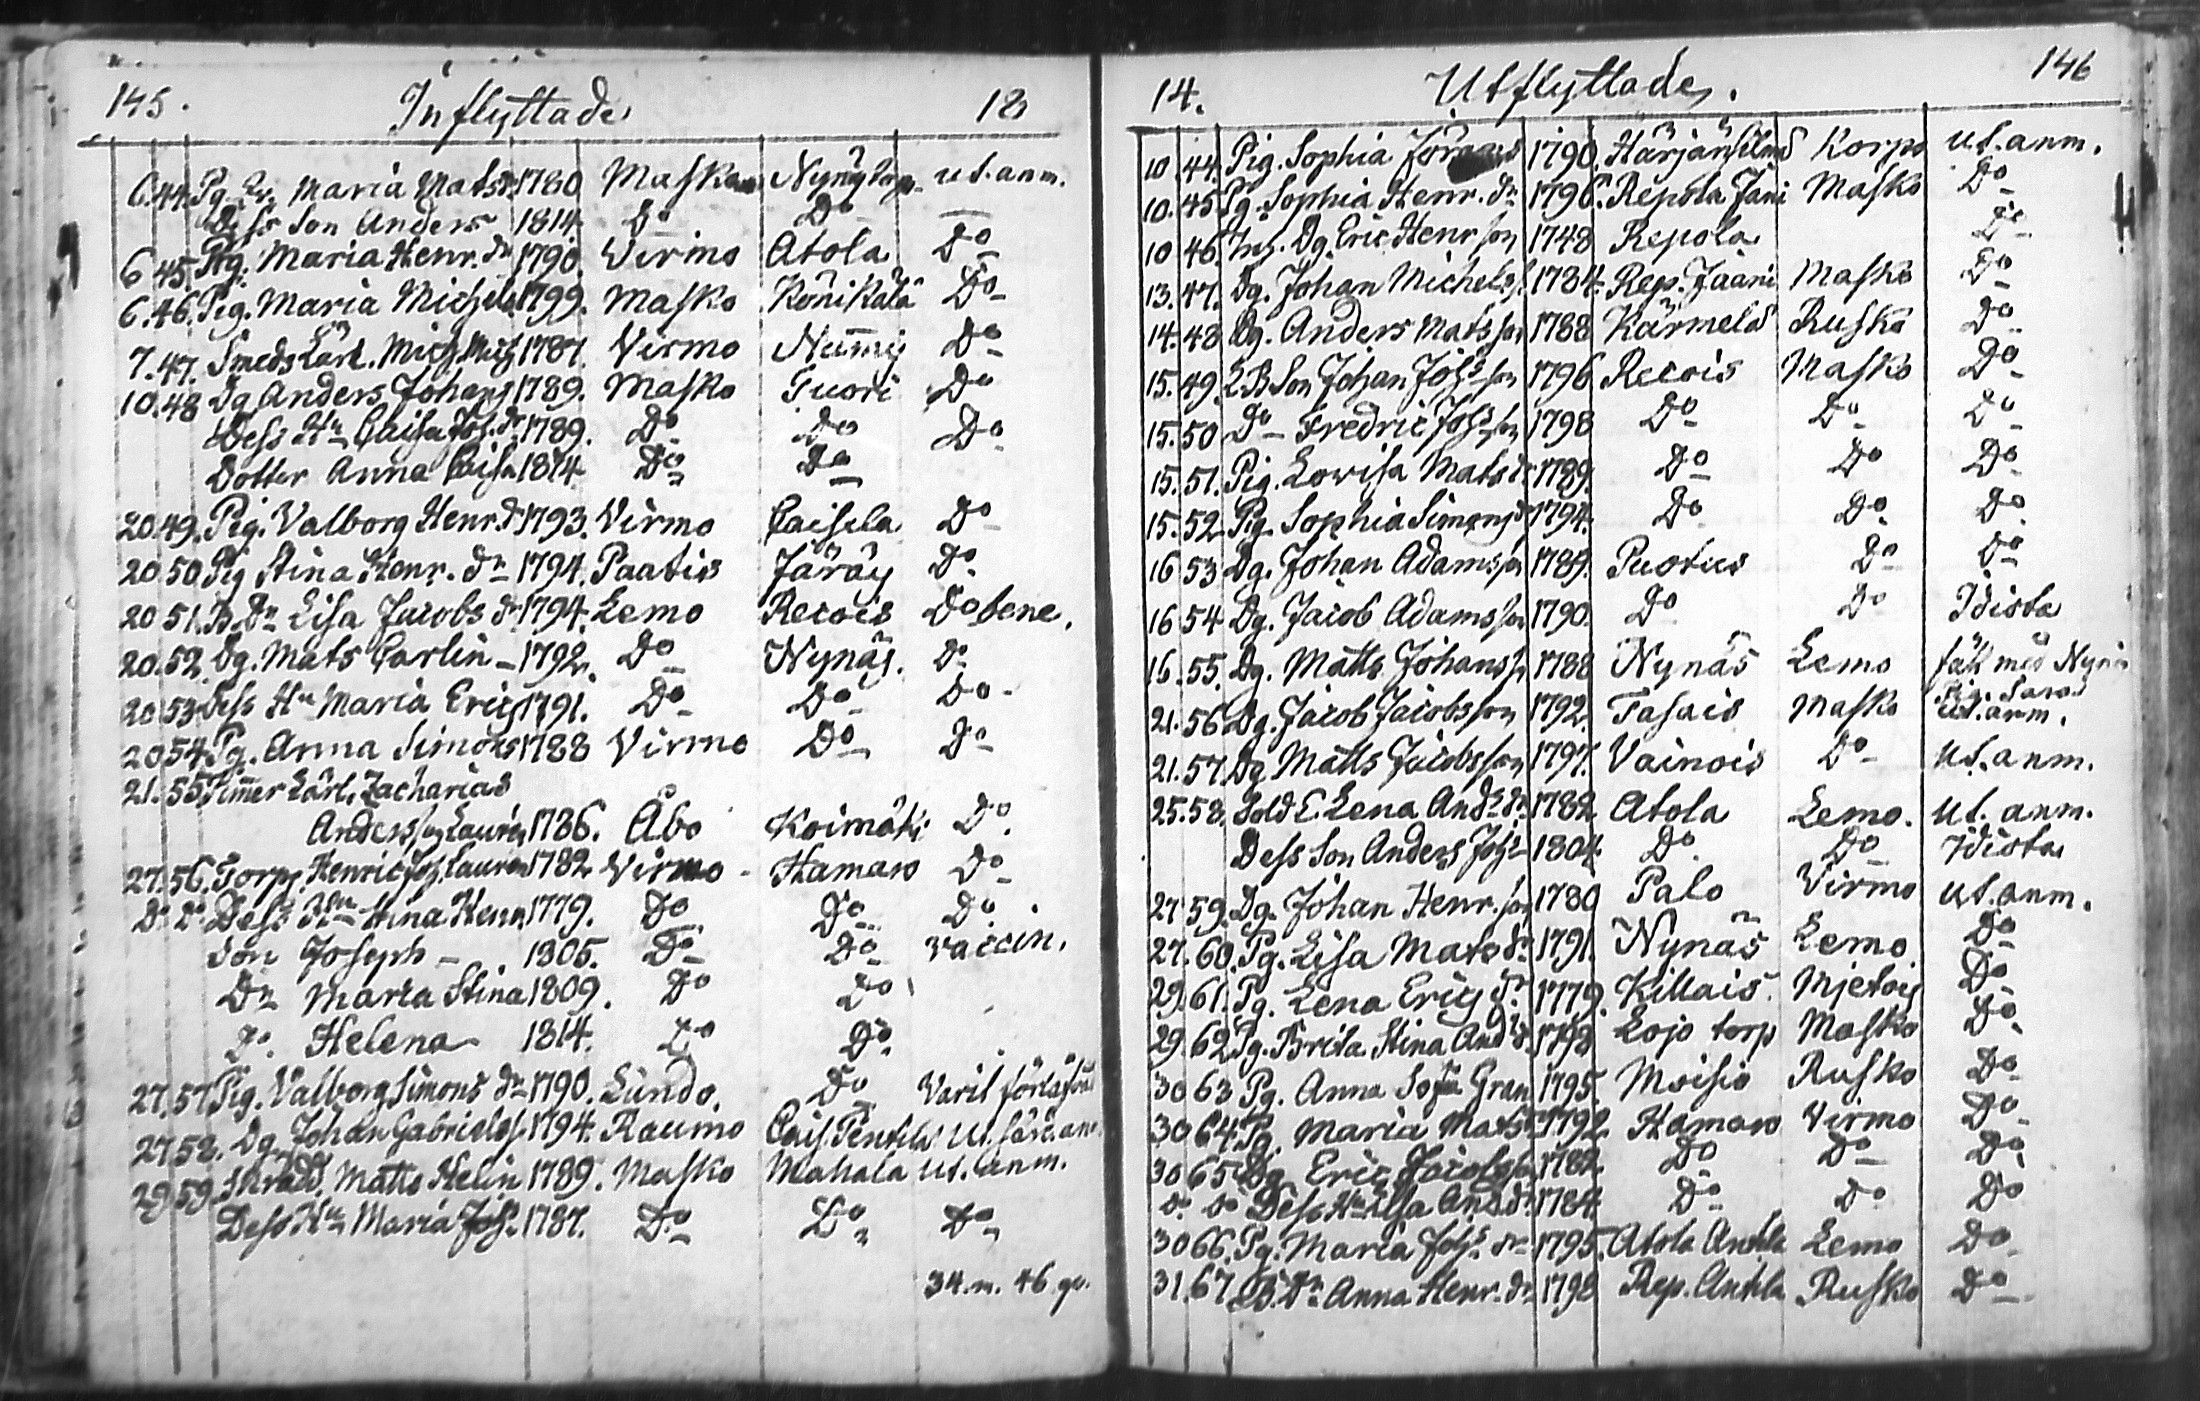 145. Inflyttade 18
6. 44. Pg. Maria Mats dr 1780 Masko Nynäs torp ut. anm.
Dess Son Anders 1814 Do Do
6 45. Pig. Maria Henr. dr 1790 Virmo Atola Do
6. 46. Pig. Maria Michels 1799. Masko Könikälä Do
7. 47. Smeds Lärl. Mich. Mich 1787. Virmo Nummis Do
10. 48 Dg Anders Johans 1789. Masko Tuori Do
Dess Hu Caisa Joh. dr 1789. Do Do Do
Dotter Anna Caisa 1814 Do Do
20. 49. Pig. Valborg Henr. dr 1793. Virmo Caisela Do
20 50. Pig Stina Henr. dr 1794. Paatis Järäis Do
20 51. B. Dr Lisa Jacobs dr 1794. Lemo Recois Do bene.
20. 52. Dg. Mats Carlin 1792. Do Nynäs. Do
20 53 Dess Hu Maria Erics 1791. Do Do Do
20 54 Pg. Anna Simons 1788 Virmo Do Do
21. 55 Timmer Lärl. Zacharias
Andersson Laurén 1786. Åbo Koimäki Do.
27. 56. Torpp. Henric Joh. Lauren 1782 Virmo Hamaro Do
Do Do Dess Hu Stina Henr 1779. Do Do Do
Son Joseph 1805. Do Do vaccin.
Dr Maria Stina 1809. Do Do
Do. Helena 1814. Do Do
27. 57 Pig. Valborg Simons dr 1790. Lundo. Do Varit förlofvad
27 58. Dg Johan Gabrielss. 1794. Raumo Cais. Pentilä ut. särd. anm.
29 59 Skradd. Matts Helin 1789. Masko Mahala ut. anm.
Dess Hu Maria Joh. 1787. Do Do Do
34. m. 46. qv.
14. Utflyttade. 146
10 44. Pig. Sophia 1790 Härjänsilmä Korpo ut. anm.
10. 45 Pg. Sophia Henr. dr 1796. Repola Jani Masko Do
10 46. Inh. Dg. Eric Henr son 1748 Repola Do
13. 47. Dg. Johan Michelss. 1784. Rep. Jaani Masko Do
14. 48 Dg. Anders Matsson 1788 Kärmelä Rusko Do
15. 49. L B Son Johan Johs son 1796 Recois Masko Do
15. 50 Do Fredric Johs son 1798 Do Do Do
15. 51. Pig. Lovisa Mats dr 1789. Do Do Do
15. 52 Pig. Sophia Simons dr 1794. Do Do Do
16 53 Dg. Johan Adamsson 1789. Puotus Do Do
16 54 Dg. Jacob Adamsson 1790. Do Do Idista
16. 55. Dg. Matts Johanss. 1788 Nynäs Lemo fäst med Nynäs
Pig. Sara
21. 56 Dg. Jacob Jacobsson 1792 Tasais Masko ut. anm.
21. 57. Dg Matts Jacobsson 1797. Vainois Do ut. anm.
25. 58. Sold E. Lena And. dr 1782 Atola Lemo. ut. anm.
Dess Son Anders Joh. 1804. Do Do Idista
27 59. Dg. Johan Henr. son 1780 Palo Virmo ut. anm.
27. 60. Pg. Lisa Mats dr 1791. Nynäs Lemo Do
29. 61. Pg. Lena Erics dr. 1779. Killais. Mjetois Do
29. 62 Pg. Brita Stina And. dr 1798 Lojo torp Masko Do
30 63 Pg. Anna Sofia Gran 1795. Moisio Rusko Do
30 64. Pg. Maria Mats dr 1792 Hamaro Virmo Do
30 65 Dg. Eric Jacobsson 1782 Do Do Do
Do. Do Dess Hu Lisa And. dr 1784 Do Do Do
30 66. Pg. Maria Johs dr 1795. Atola Anttila Lemo Do
31. 67. B. Dr Anna Henr. dr 1798 Rep. Anttila Rusko Do